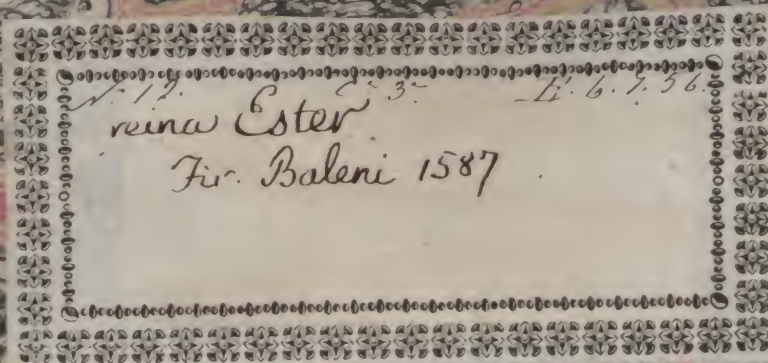 N. 12. C. 3. L. 6. 7. 56.
reina Ester
Fir. Baleni 1587